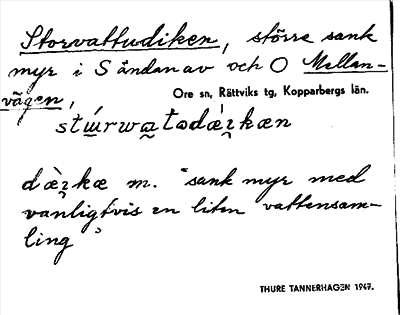 Storvattudiken, större sank
myr i S ändan av och O Mellan-
vägen,
Ore sn, Rättviks tg, Kopparbergs län.
stɯ́rwa̰tədǽ̰kæn
dæ̰̀kæ m. "sank myr med
vanligtvis en liten vattensam-
ling"
THURE TANNERHAGEN 1947.